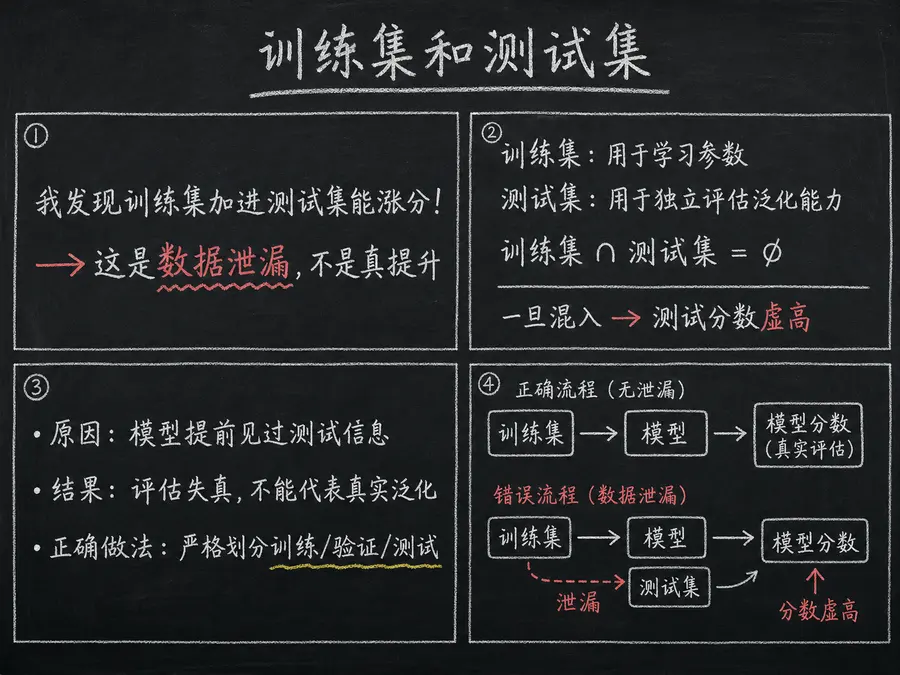 训练集和测试集
①
我发现训练集加进测试集能涨分！
→ 这是数据泄漏，不是真提升
②
训练集：用于学习参数
测试集：用于独立评估泛化能力
训练集 ∩ 测试集 = ∅
一旦混入 → 测试分数虚高
③
• 原因：模型提前见过测试信息
• 结果：评估失真，不能代表真实泛化
• 正确做法：严格划分训练/验证/测试
④
正确流程（无泄漏）
训练集 → 模型 → 模型分数
（真实评估）
错误流程（数据泄漏）
训练集 → 模型 → 模型分数
泄漏 测试集
分数虚高